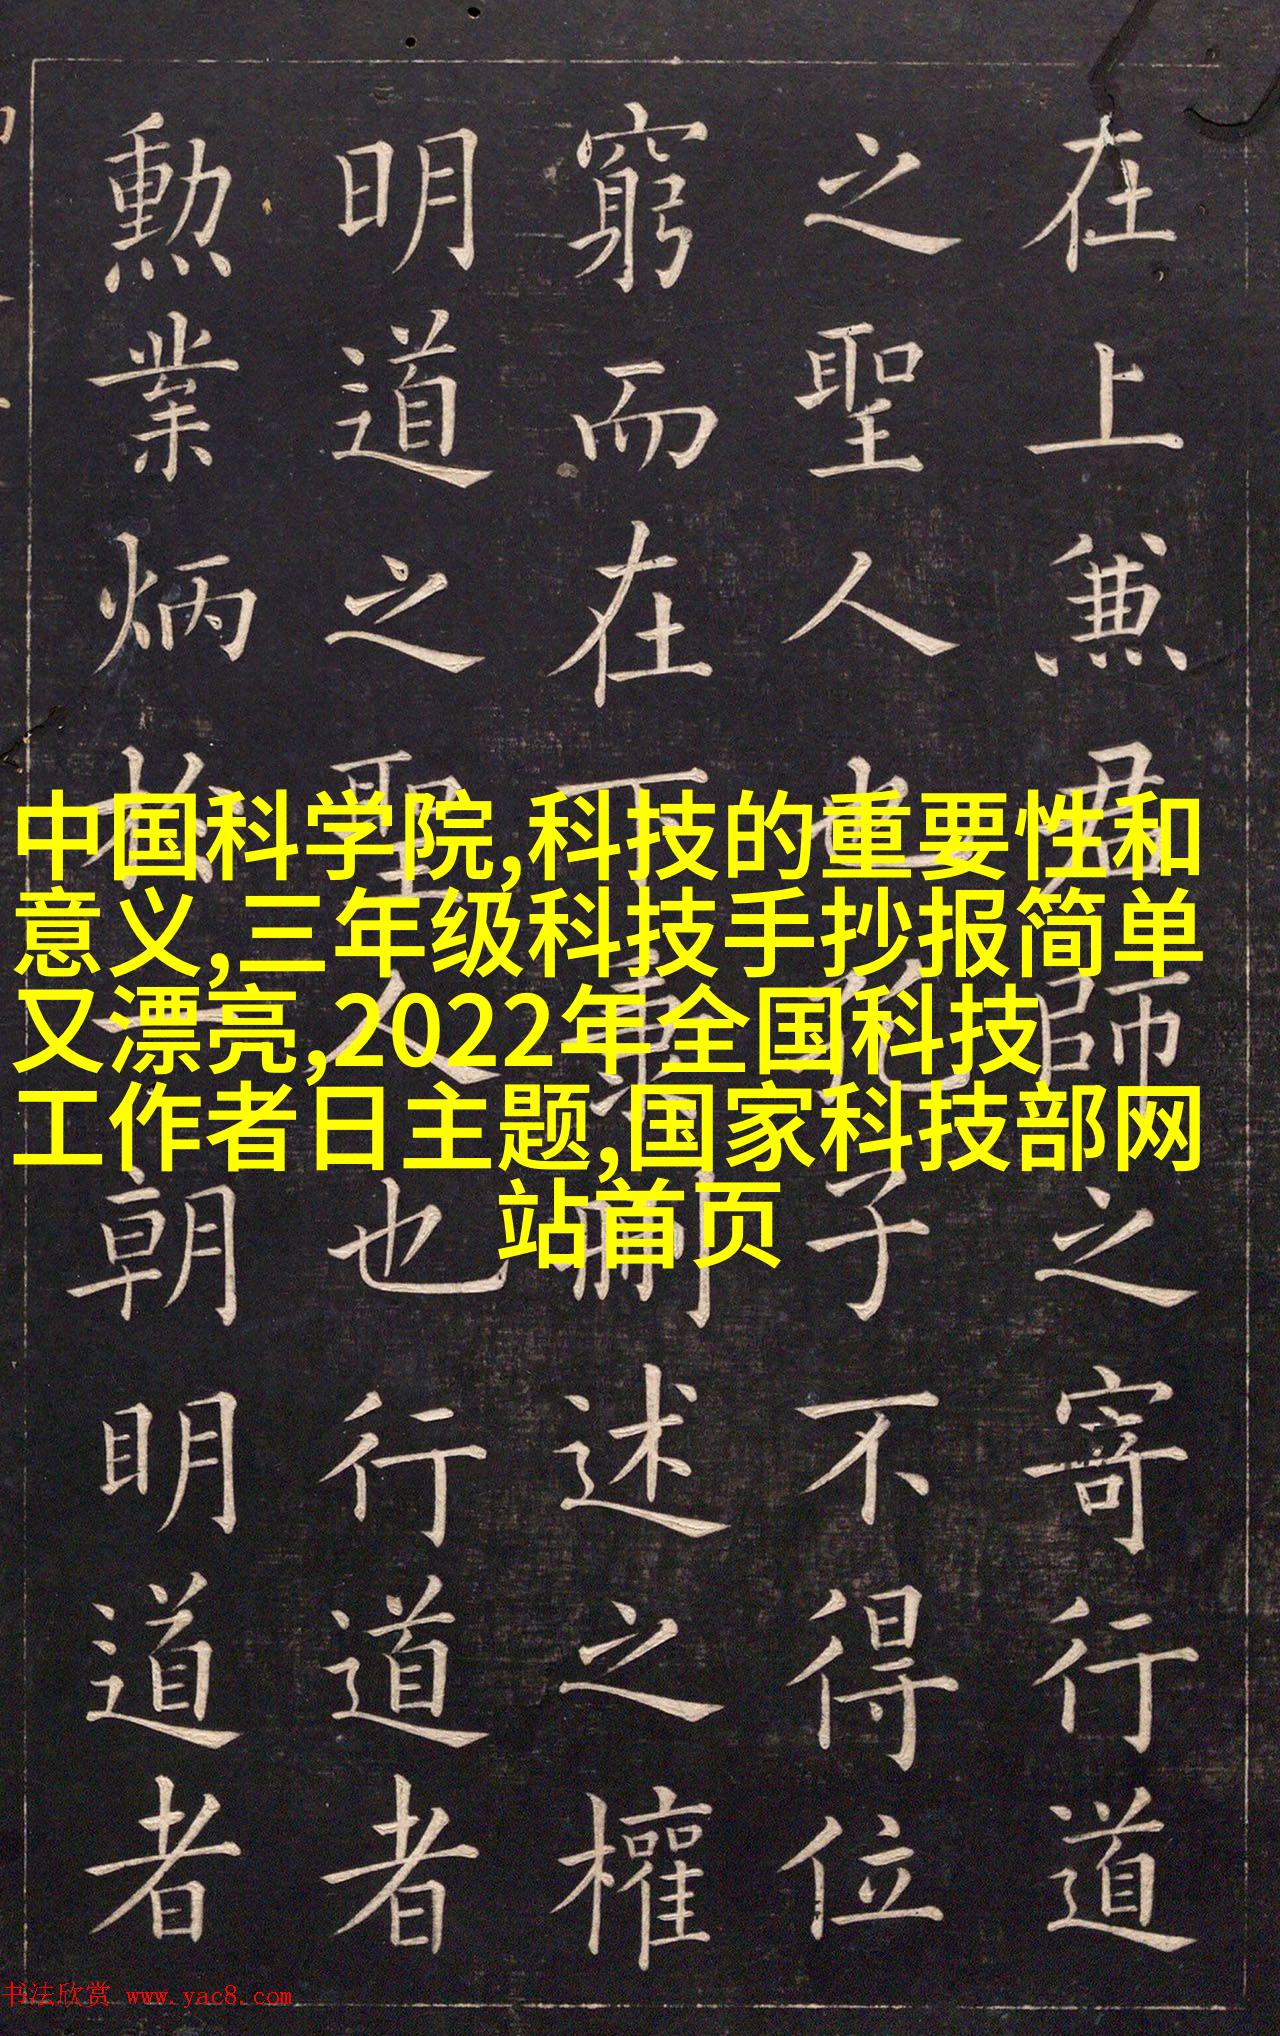 在上兼君師之寄行道
之聖人也孔子不得位
窮而在下刪述之權
明道之聖人也行道者
勳業炳於一朝明道者
中国科学院,科技的重要性和
意义,三年级科技手抄报简单
又漂亮,2022年全国科技
工作者日主题,国家科技部网
站首页
书法欣赏 www.yac8.com